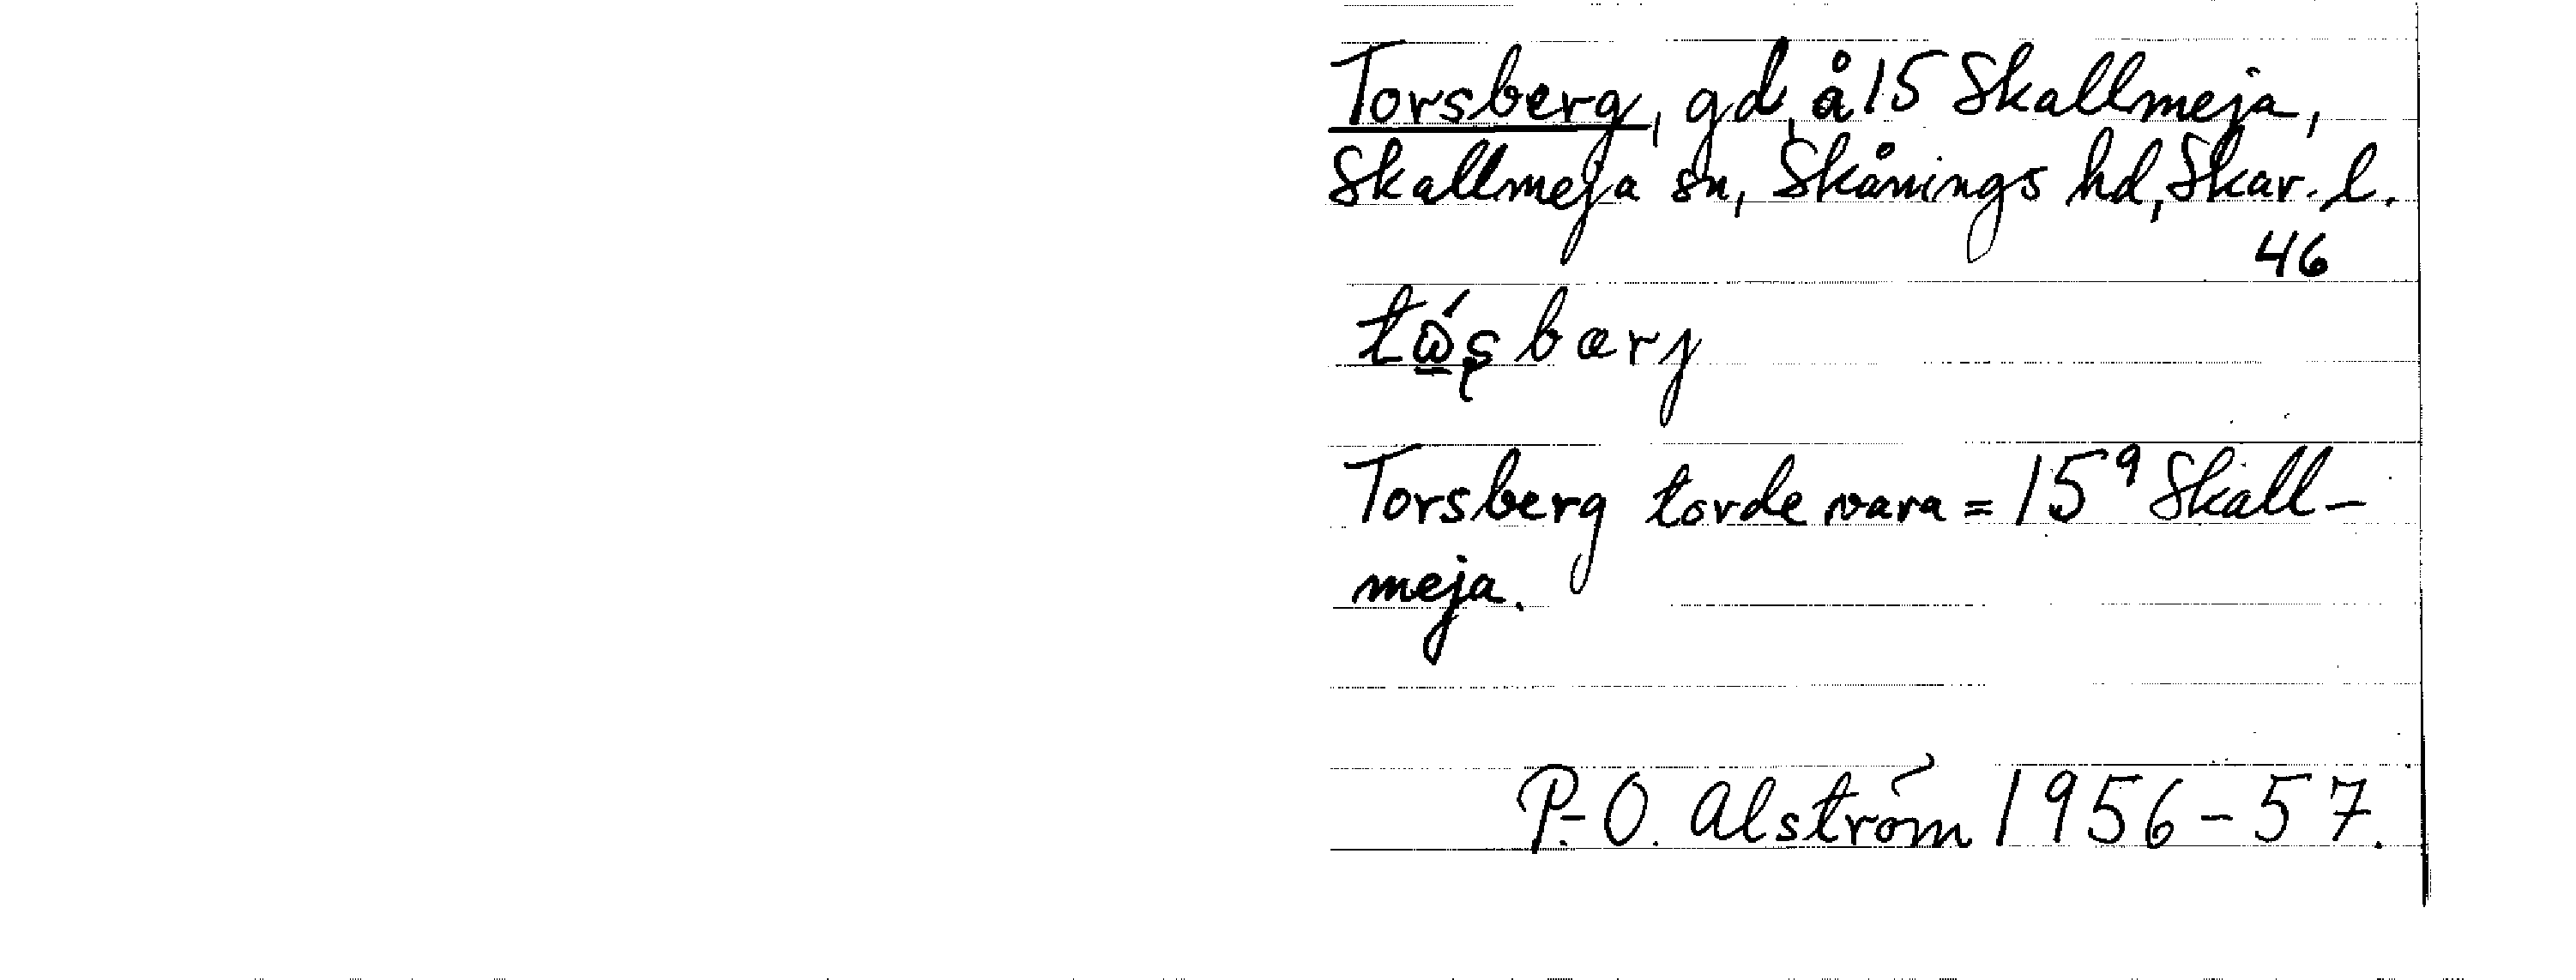 Torsberg, gd, å 15 Skallmeja,
Skallmeja sn, Skånings hd, Skar. l.
46
Torsberg torde vara = 15⁹ Skall-
meja.
P.-O. Alström 1956-57.